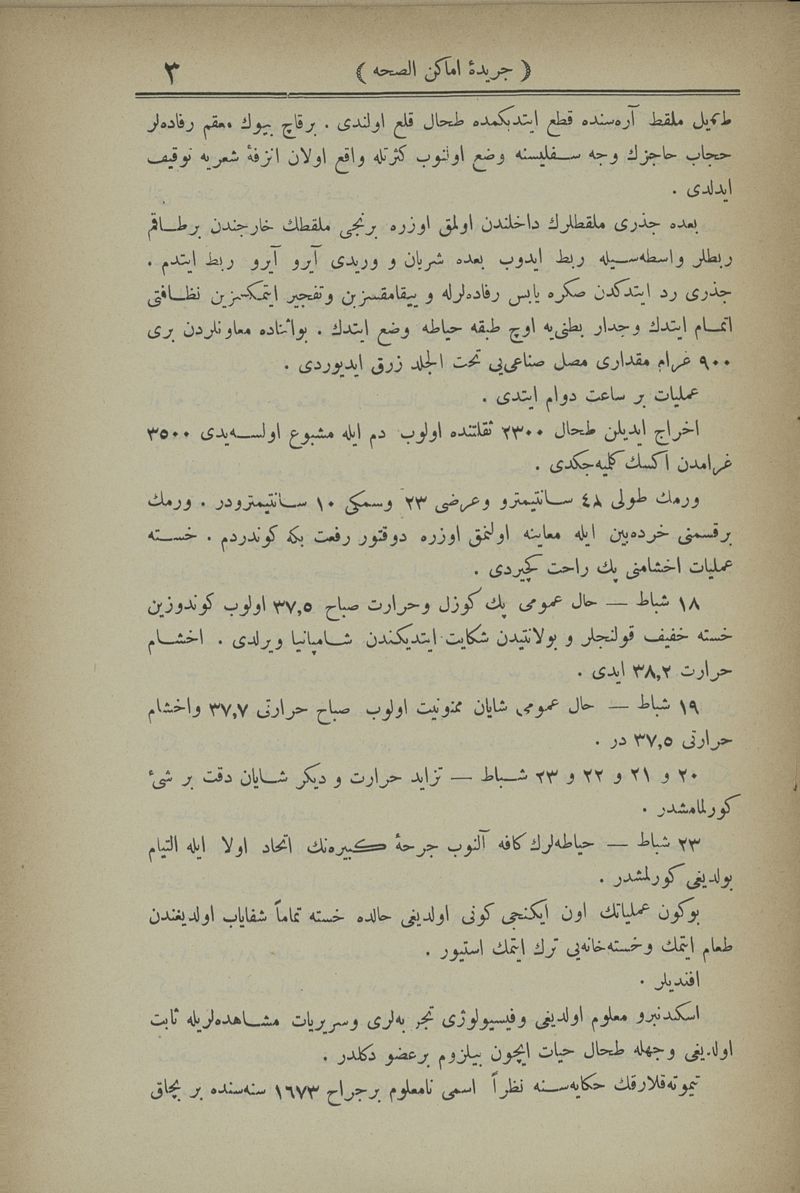 ﴿ جريدۀ اماكن الصحه ﴾ ٣
طويل ملقط آره‌سنده قطع ايتديكمده طحال قلع اولندى . برقاچ بيوك معقم رفاده‌لر
حجاب حاجزك وجه سفليسنه وضع اولنوب كثرتله واقع اولان انزفۀ شعريه توقيف
ايدلدى .
بعده جذرى ملقطلرك داخلندن اولمق اوزره برنجى ملقطك خارجندن برطاقم
ربطلر واسطه‌سيله ربط ايدوب بعده شريان و وريدى آيرو آيرو ربط ايتدم .
جذرى رد ايتدكدن صكره يابس رفاده‌لرله و ييقامقسزين وتفجير ايتمكسزين نظافتى
اتمام ايتدك وجدار بطنى‌يه اوچ طبقه حياطه وضع ايتدك . بواثناده معاونلردن برى
٩٠٠ غرام مقدارى مصل صناعى‌يى تحت الجلد زرق ايديوردى .
عمليات بر ساعت دوام ايتدى .
اخراج ايديلن طحال ٢٣٠٠ ثقلتنده اولوب دم ايله مشبوع اولسه‌يدى ٣٥٠٠
غرامدن اكسك كلميه‌جكدى .
ورمك طولى ٤٨ سانتيمترو وعرضى ٢٣ وسمكى ١٠ سانتيمترودر . ورمك
برقسمنى خرده‌بين ايله معاينه اولنمق اوزره دوقتور رفعت بكه كوندردم . خسته
عمليات اخشامنى پك راحت كچيردى .
١٨ شباط — حال عمومى پك كوزل وحرارت صباح ٣٧,٥ اولوب كوندوزين
خسته خفيف قولنجلر و بولانتيدن شكايت ايتديكندن شامپانيا ويرلدى . اخشام
حرارت ٣٨,٢ ايدى .
١٩ شباط — حال عمومى شايان ممنونيت اولوب صباح حرارتى ٣٧,٧ واخشام
حرارتى ٣٧,٥ در .
٢٠ و ٢١ و ٢٢ و ٢٣ شباط — تزايد حرارت و ديكر شايان دقت بر شئ
كورلمامشدر .
٢٣ شباط — حياطه‌لرك كافه آلنوب جرحۀ كبيره‌نك اتحاد اولا ايله التيام
بولديغى كورلمشدر .
بوكون عملياتك اون ايكنجى كونى اولديغى حالده خسته تماماً شفاياب اولديغندن
طعام ايتمك وخسته‌خانه‌يى ترك ايتمك استيور .
افنديلر .
اسكدنبرو معلوم اولديغى وفيسيولوژى تجربه‌لرى وسريريات مشاهده‌لريله ثابت
اولديغى وجهله طحال حيات ايچون بيلزوم برعضو دكلدر .
تيموته‌قلارقك حكايه‌سنه نظراً اسمى نامعلوم برجراح ١٦٧٣ سنه‌سنده بر بچاق